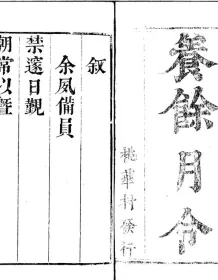 養餘月令
桃華邨發行
叙
余夙備員
禁邃日觀
朝常以暨